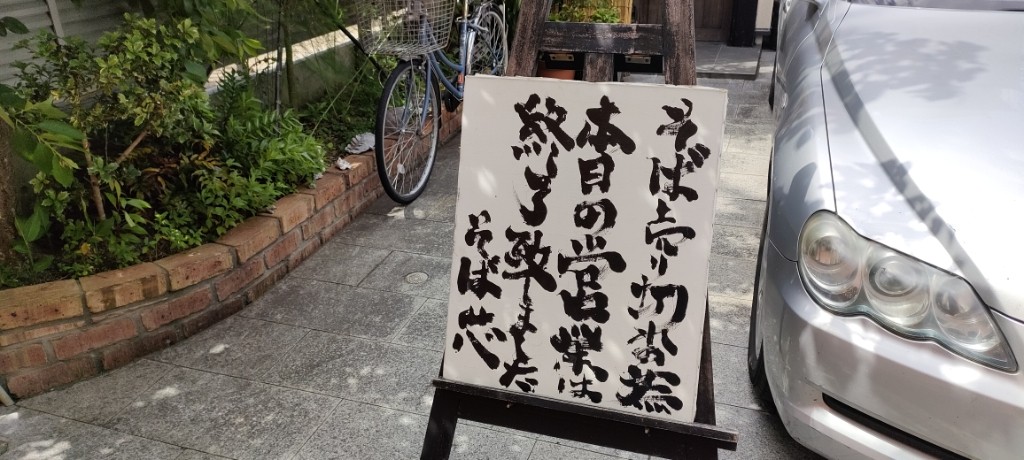 そば売り切れ為
本日の営業は
終了致しました
そば芯